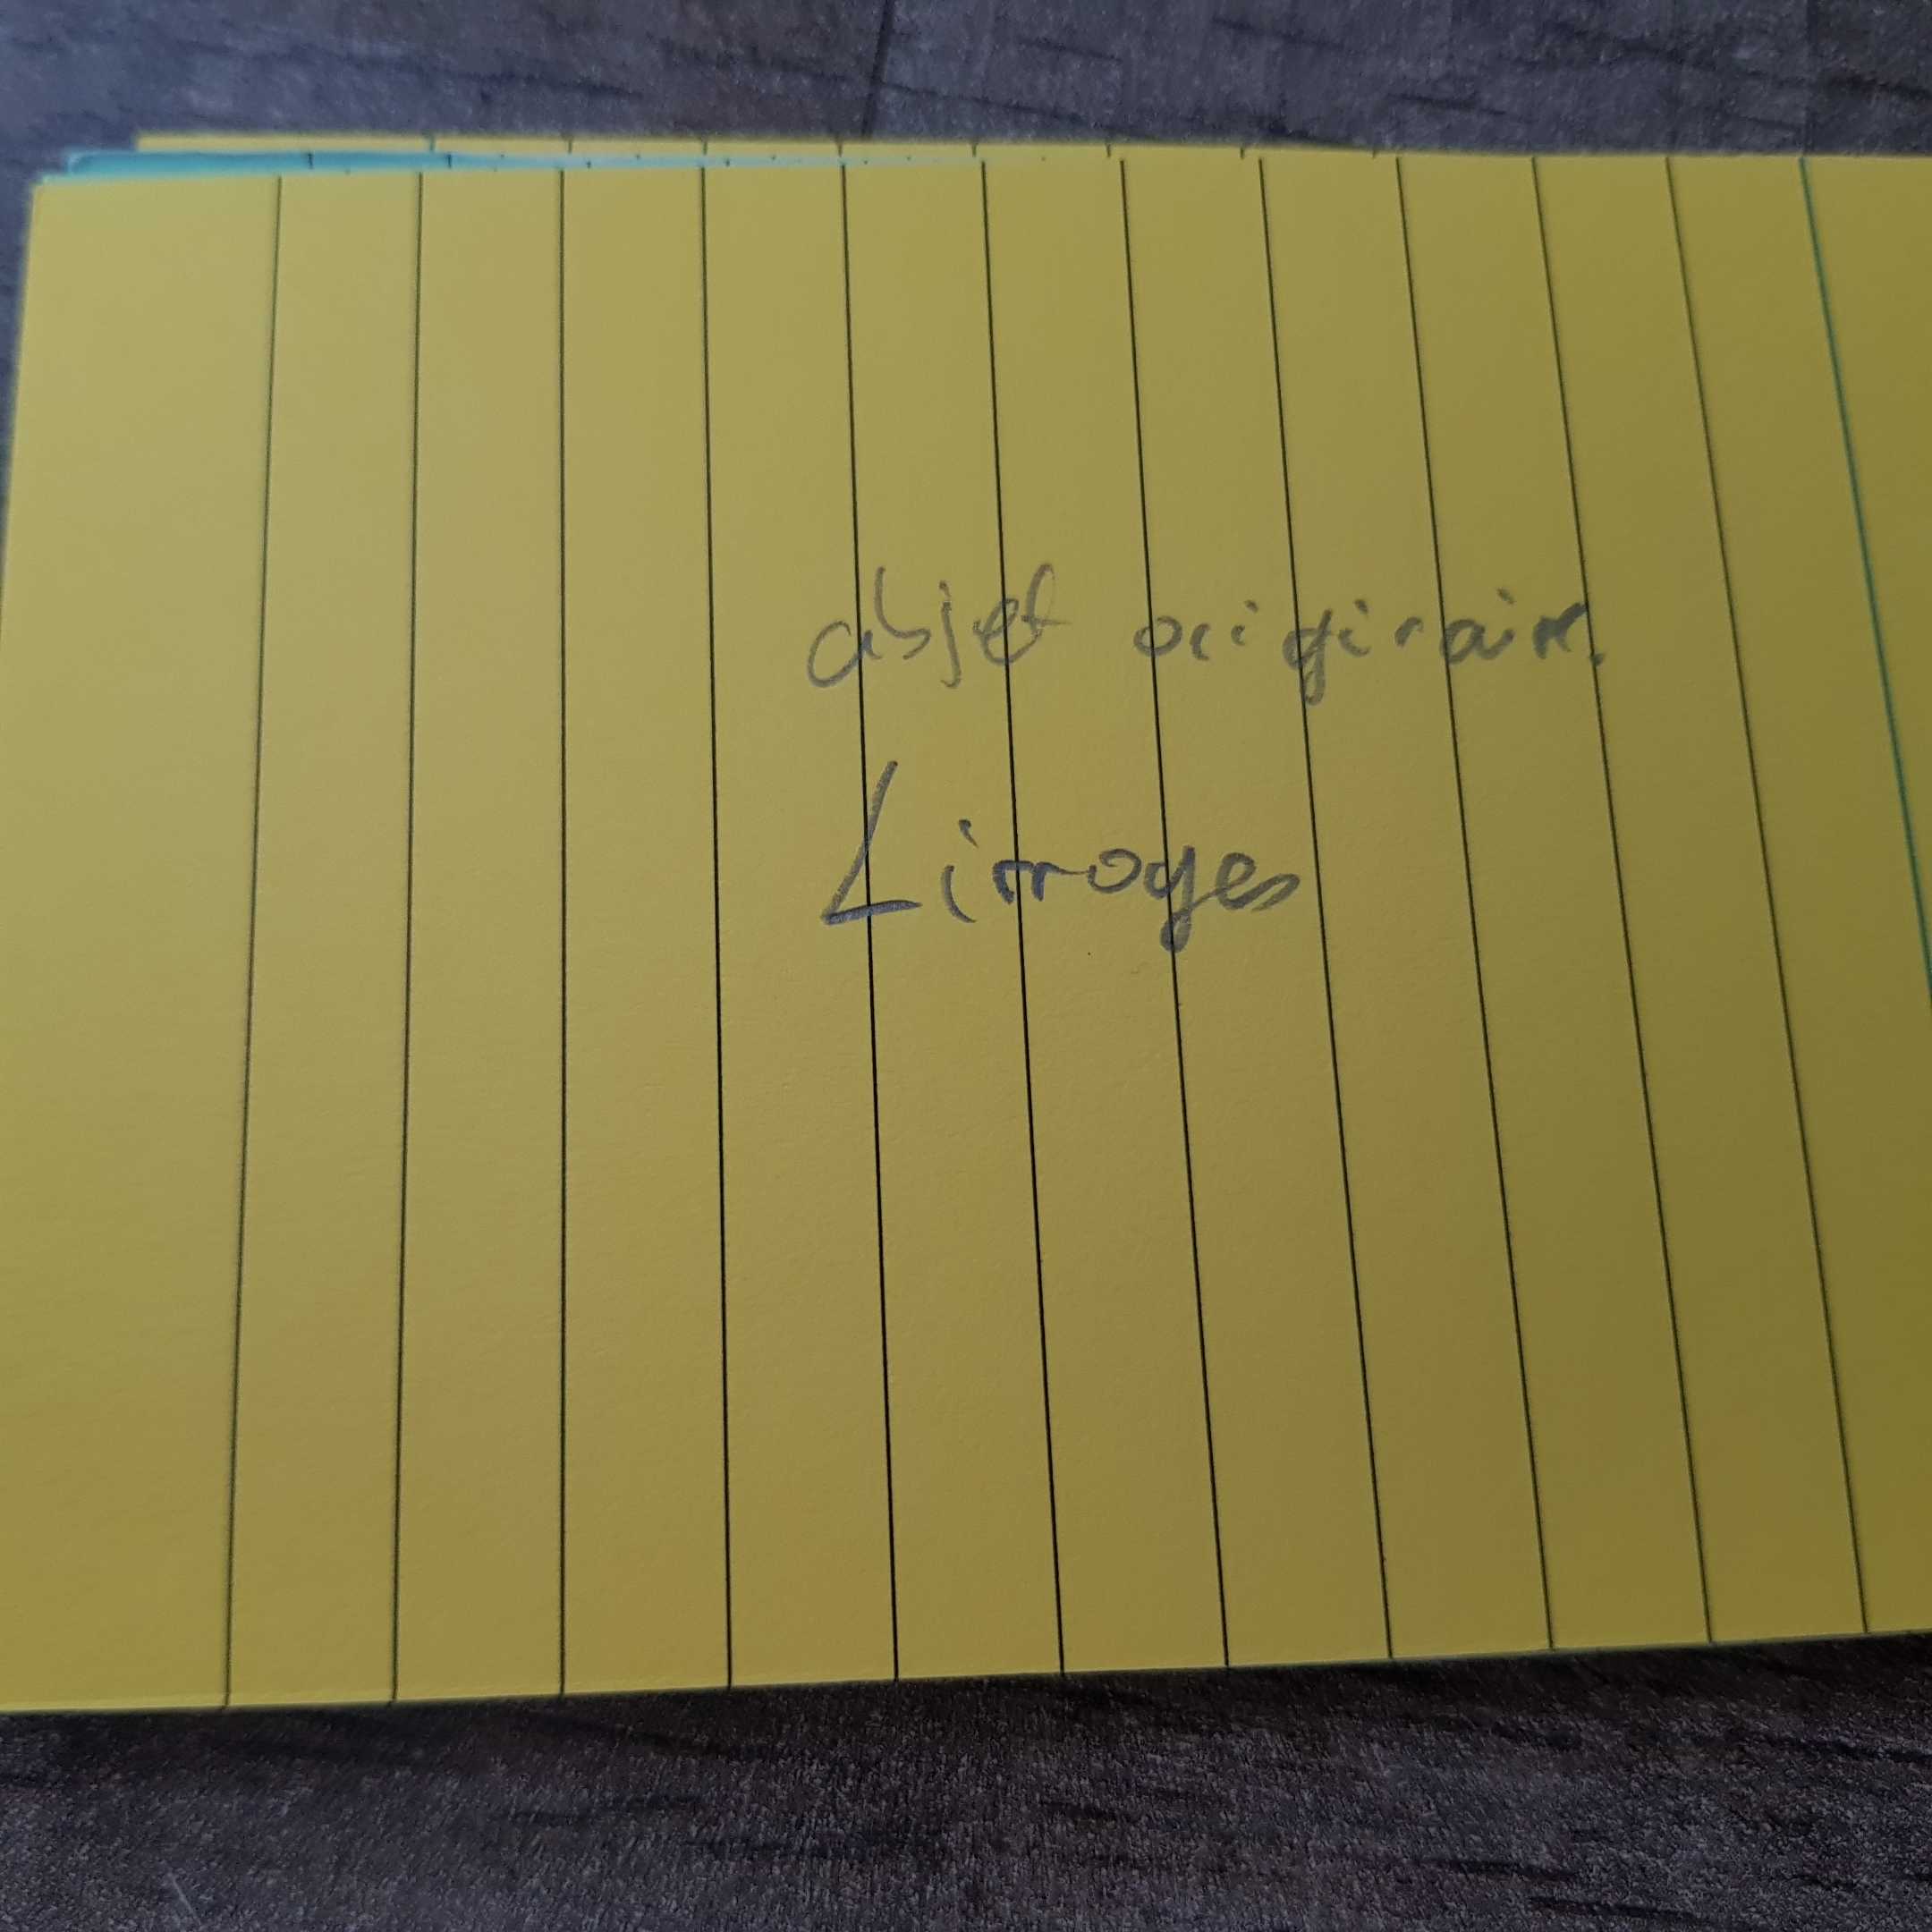 objet originaire
Limoges